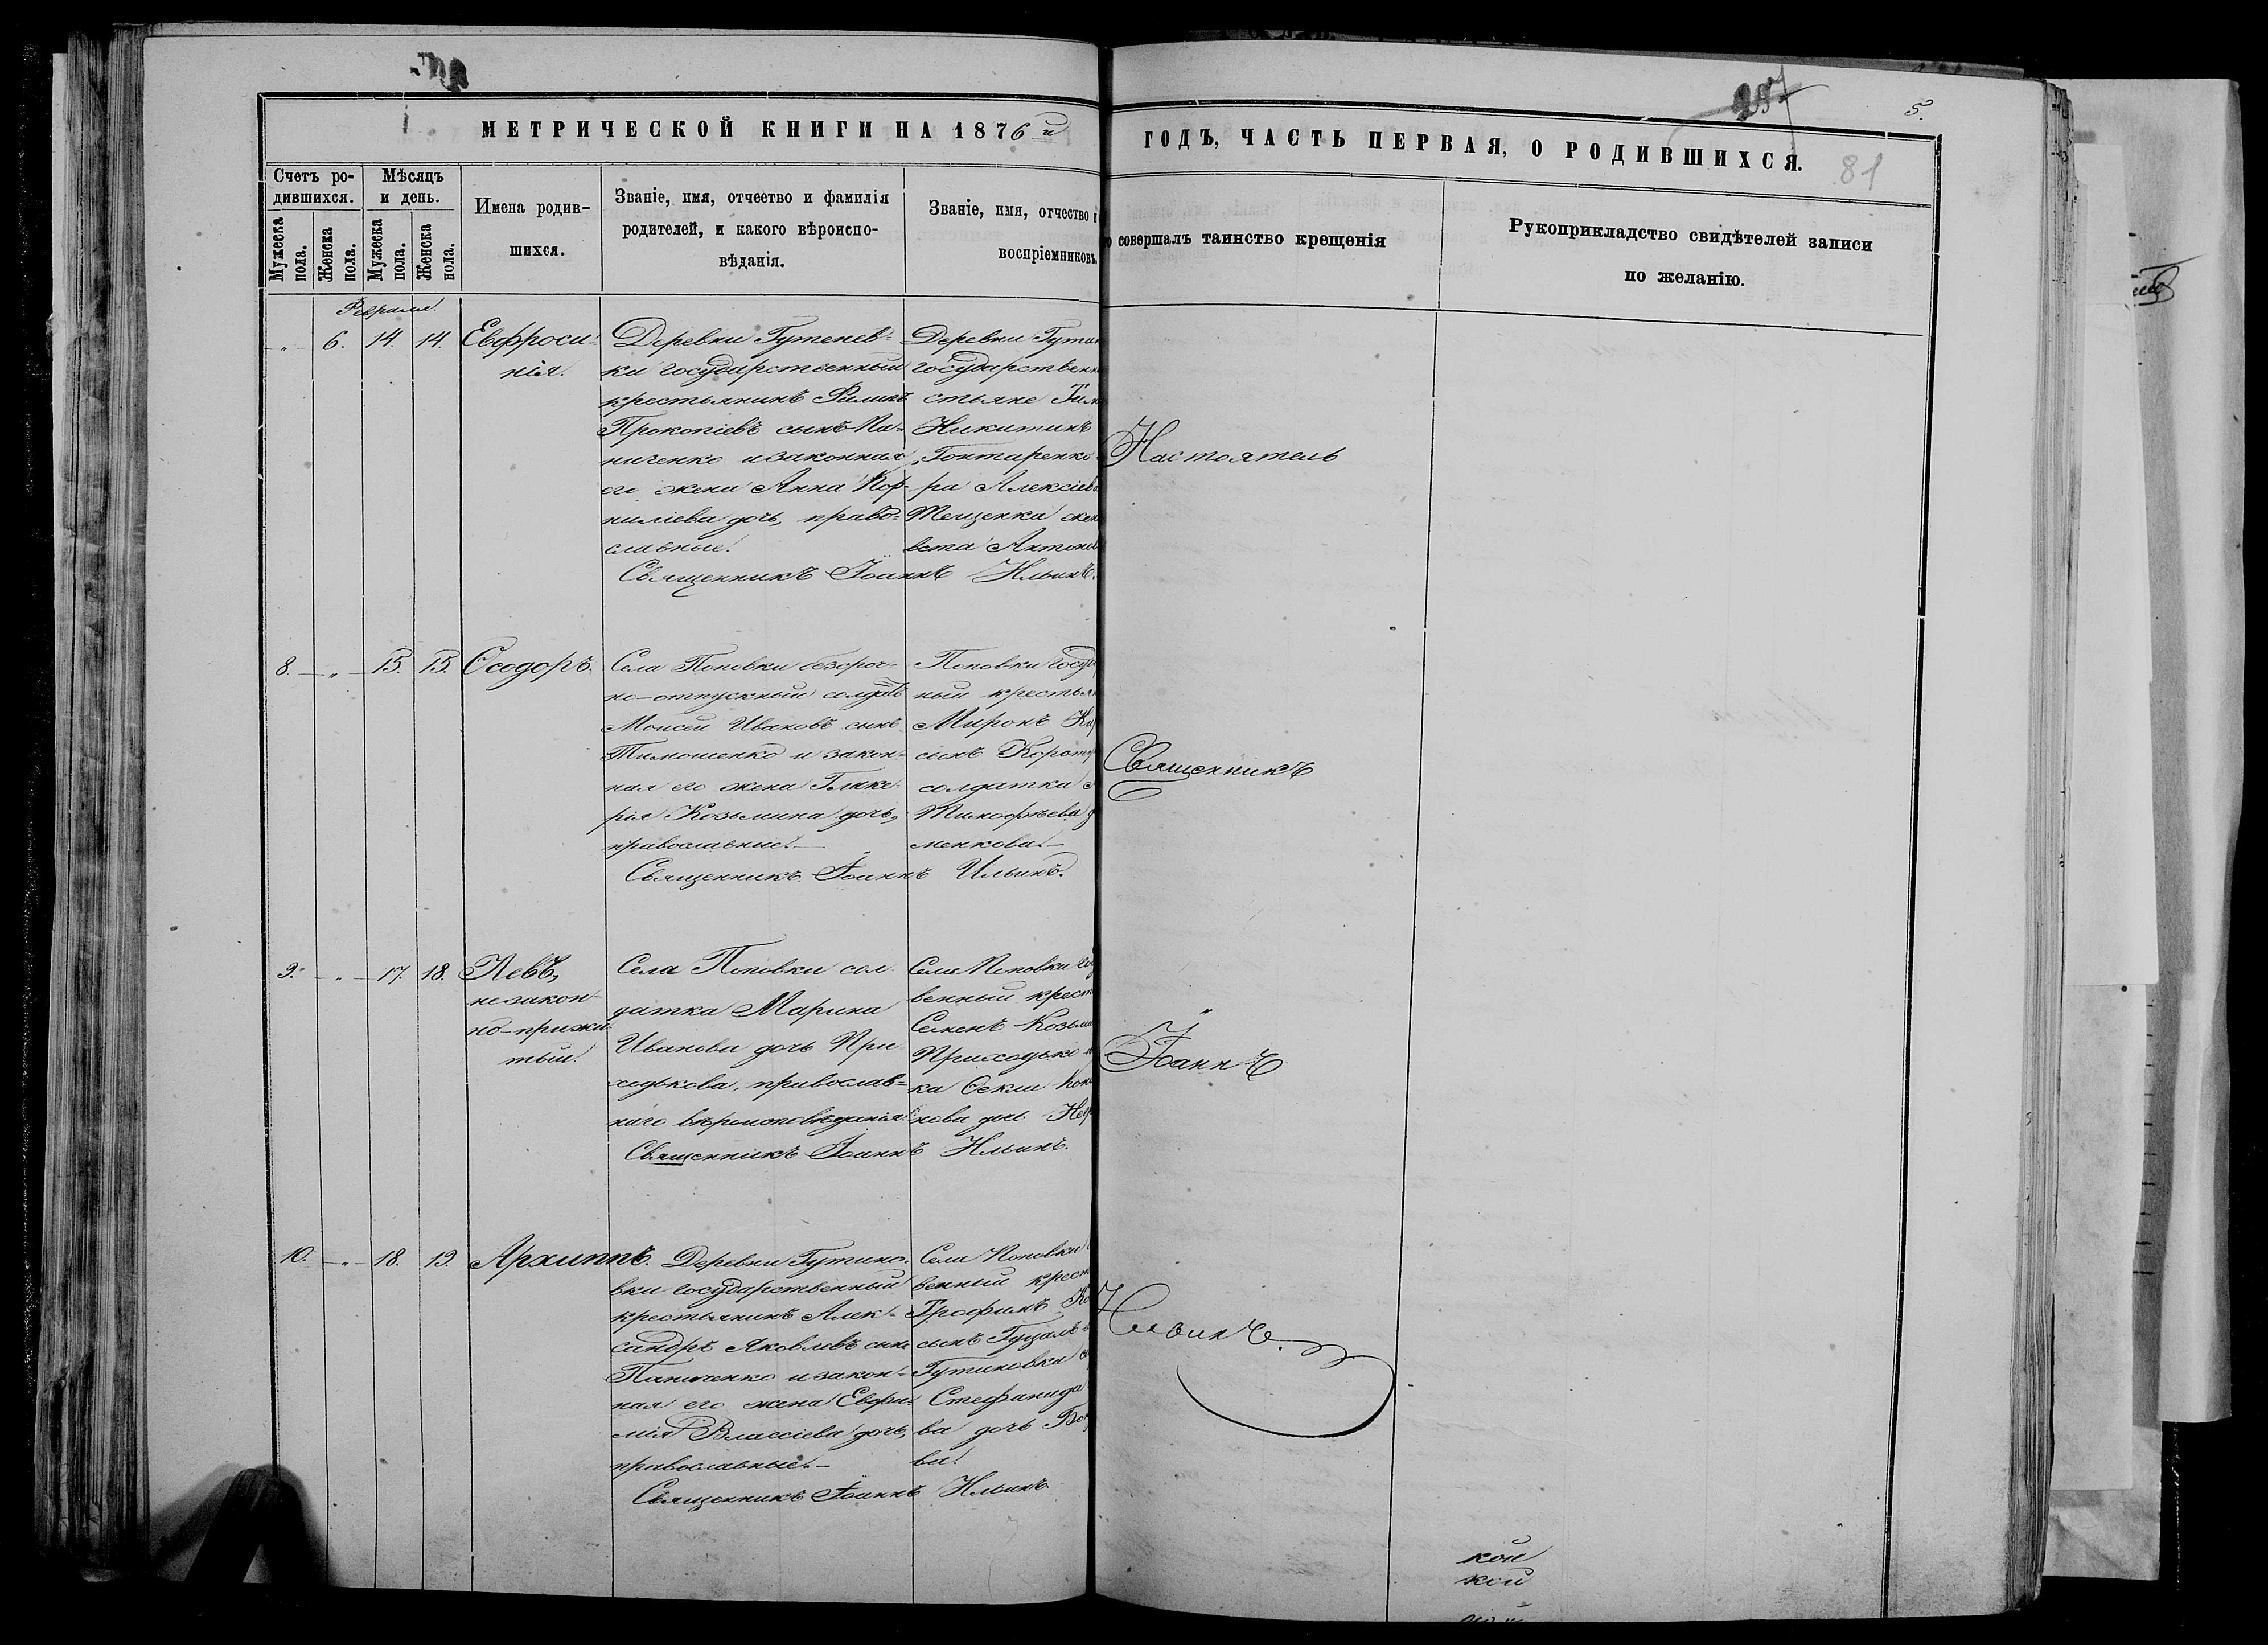 257
5.
81
МЕТРИЧЕСКОЙ КНИГИ НА 1876й
ГОДЪ, ЧАСТЬ ПЕРВАЯ, О РОДИВШИХСЯ.
Счетъ ро-
дившихся.
Мужеска
пола.
Женска
пола.
Мѣсяцъ
и день.
Мужеска
пола.
Женска
пола.
Имена родив-
шихся.
Званіе, имя, отчество и фамилія
родителей, и какого вѣроиспо-
вѣданія.
Званіе, имя, отчество
воспріемниковъ.
совершалъ таинство крещенія
Рукоприкладство свидѣтелей записи
по желанію.
Февраля.
6. 14. 14.
Евфроси-
нія.
Деревни Гутенев-
ки государственный
крестьянинъ Филипъ
Прокопіевъ сынъ Па-
ниченко и законная
его жена Анна Кор-
ниліева дочь, право-
славные.
Деревни Гути
государственн
стьяне
Никитинъ
Гонтаренко
ри Алексіев
Тещенка жен
вста Антонов
Священникъ Іоаннъ Ильинъ.
8. 15. 15.
Ѳеодоръ.
Села Поповки безсроч-
но-отпускный солдатъ
Моисей Ивановъ сынъ
Тимошенко и закон-
ная его жена Глике-
рія Козьмина дочь,
православные.
Поповки госуд
ный крестьян
Миронъ
сынъ Корот
солдатка
Тимофѣева
менкова.
Священникъ Іоаннъ Ильинъ.
9. 17. 18.
Левъ,
незакон-
но-прижи-
тый.
Села Поповки сол-
датка Марина
Иванова дочь При-
ходькова, православ-
наго вѣроисповѣданія.
Села Поповки го
венный крест
Семенъ Козьми
Приходько
ка Ѳекла Кон
нова дочь
Священникъ Іоаннъ Ильинъ.
10. 18. 19.
Архиппъ.
Деревни Гутино-
вки государственный
крестьянинъ Алек-
сандръ Яковлевъ сынъ
Паниченко и закон-
ная его жена Евфи-
мія Влассіева дочь,
православные.
Села Поповки
венный крест
Трофимъ
сынъ Гуцалъ
Гутиновки
Стефанида
ва дочь
ва.
Священникъ Іоаннъ Ильинъ.
Настоятель
Священникъ
Іоаннъ
Ильинъ.
кой
кой